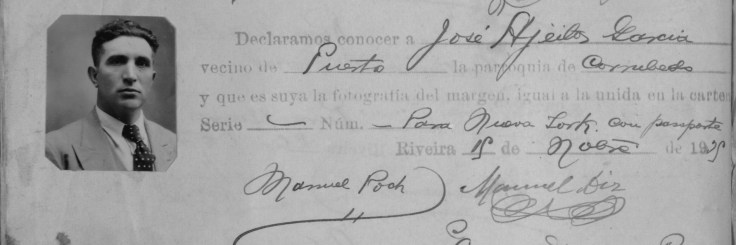 Declaramos conocer a José Ageitos Garcia
vecino de Puerto la parroquia de Corrubedo
y que es suya la fotografía del margen, igual a la unida en la cartera
Serie C Núm. — Para Nueva York. con pasaporte
Riveira 15 de Nobre de 19
Manuel Poch Manuel Diz